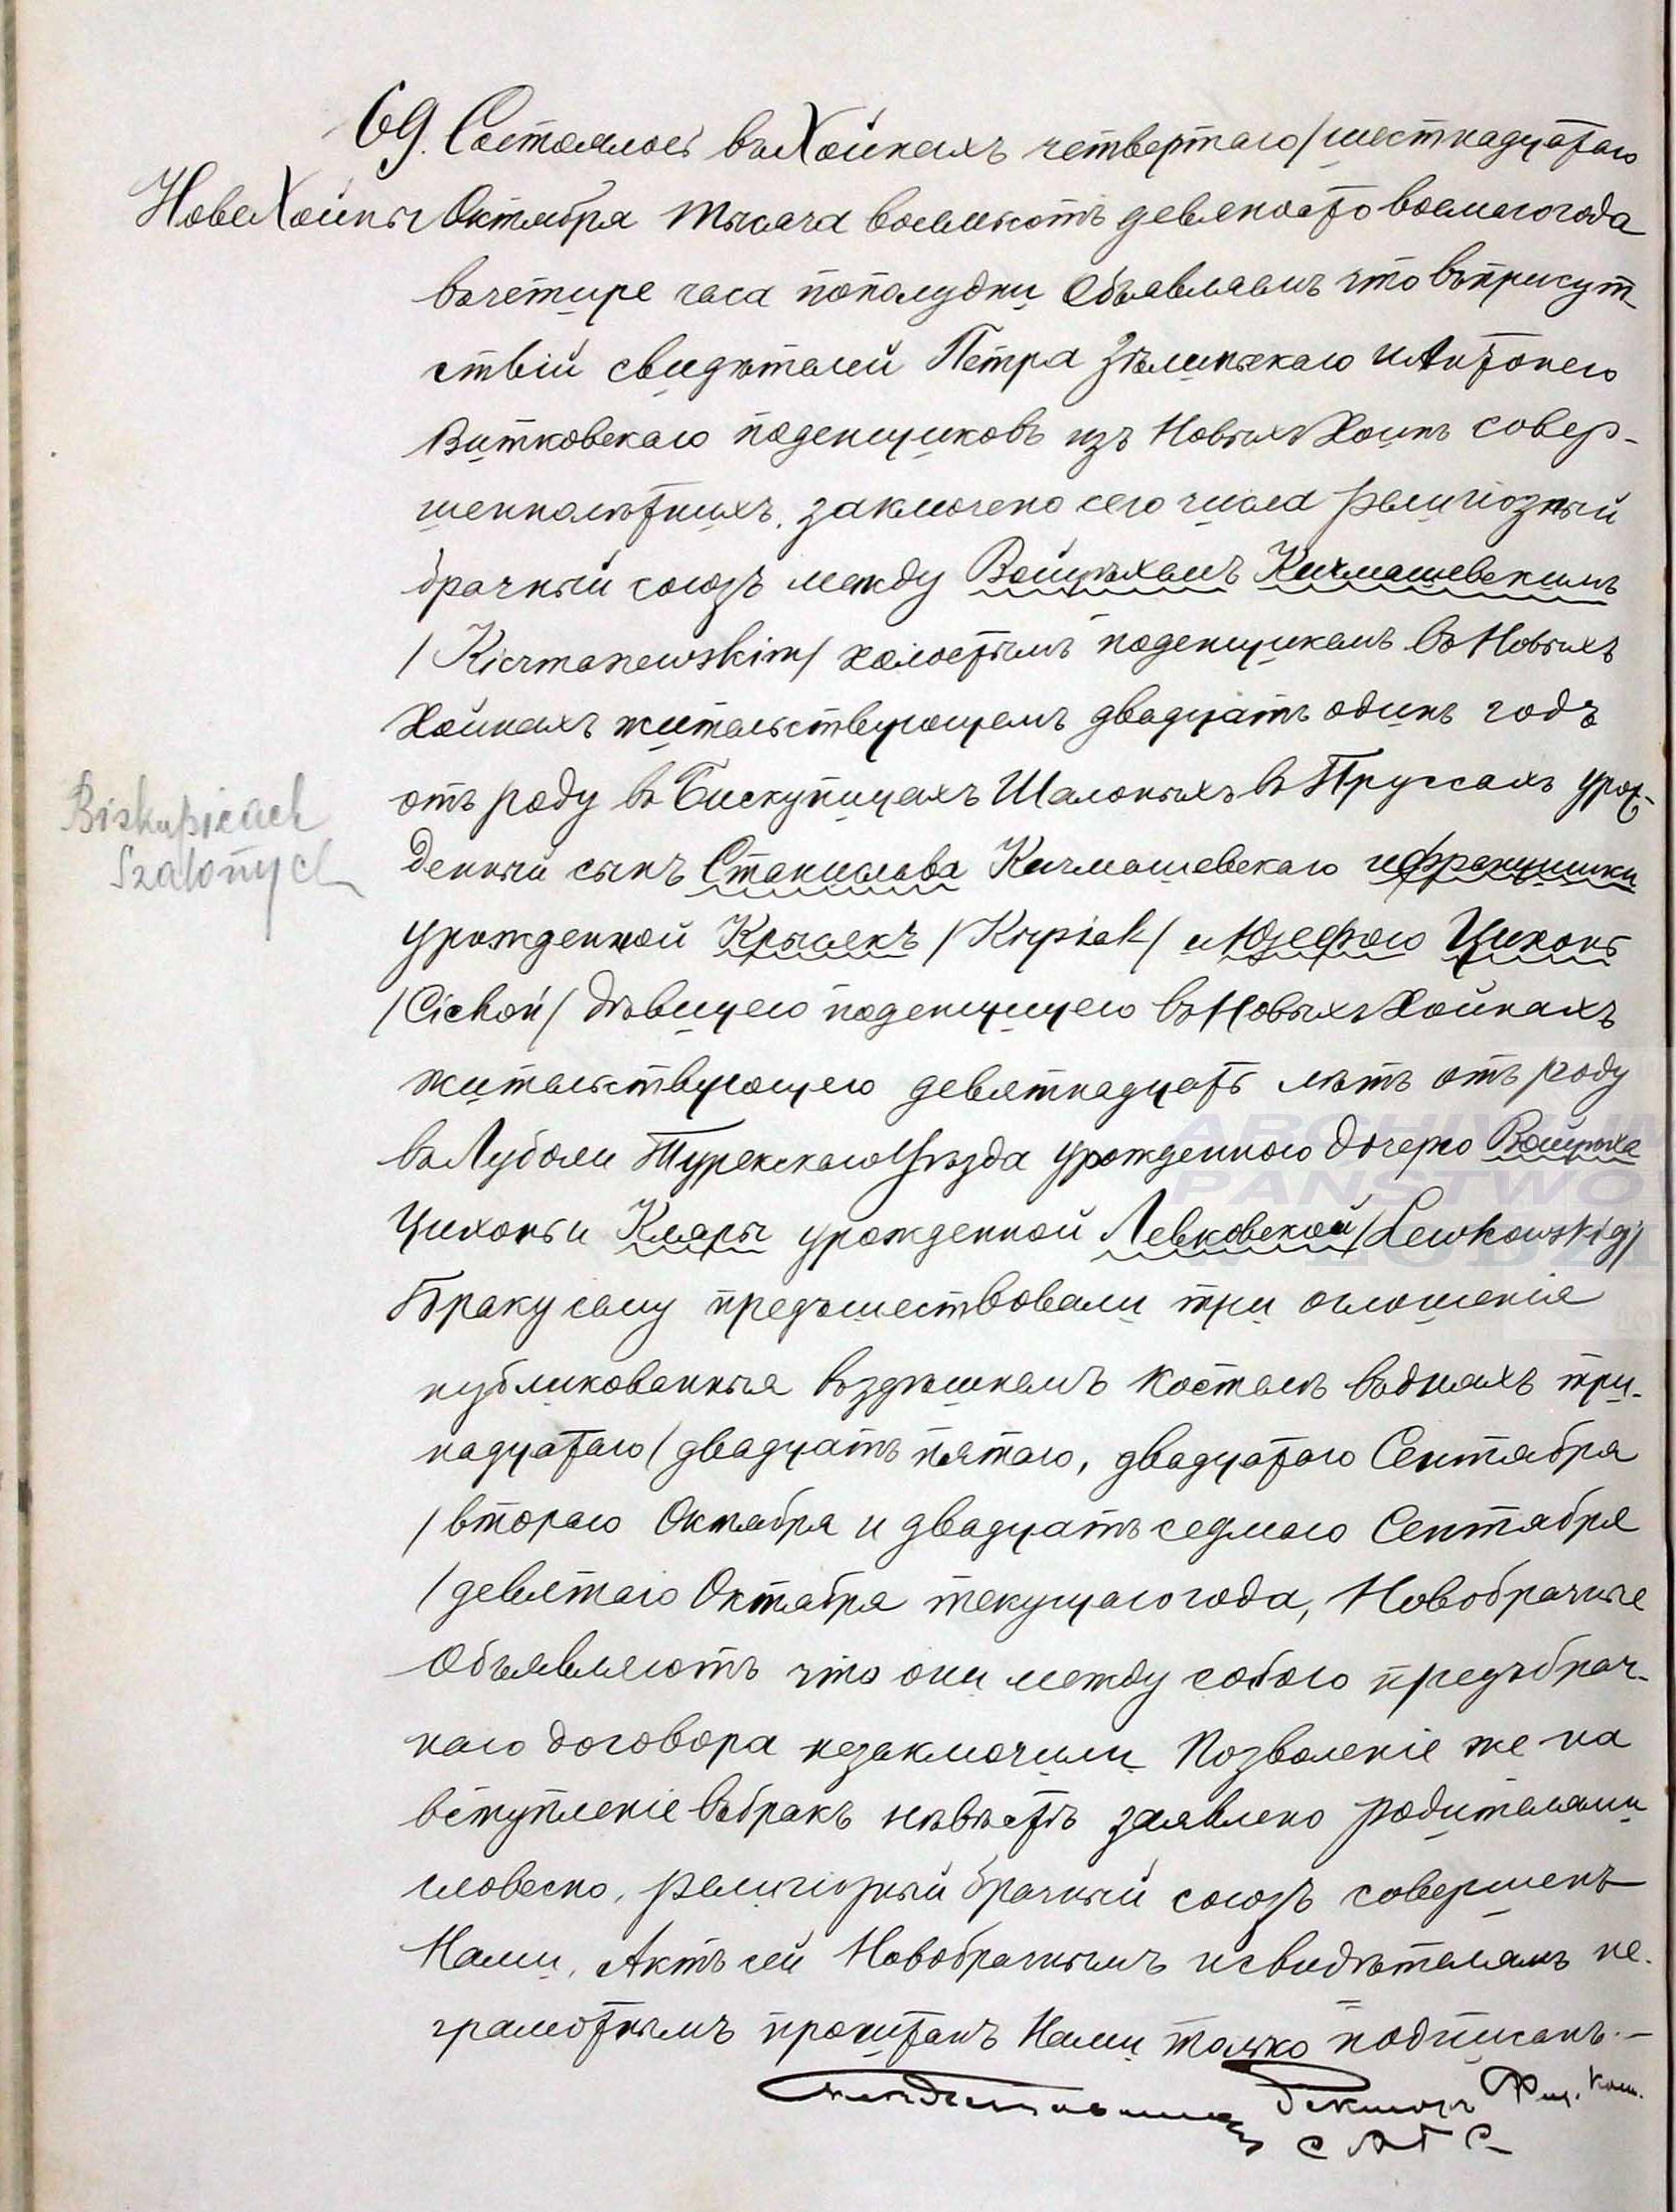 69. Состоялось въ Хойнахъ четвертаго/шестнадцатаго
Нове Хойны Октября тысяча восемьсотъ девяносто восмаго года
въ четире часа пополудни Объявляемъ что въ присут
ствіи свидѣтелей Петра Зѣлиньскаго и Антонего
Витковскаго поденщиковъ изъ Новыхъ Хоинъ совер-
шеннолѣтнихъ, заключено сего числа религіозный
брачный союзъ между Войцѣхемъ Кичмашевскимъ
/Kiczmaszewskim/ холостымъ поденщикемъ въ Новыхъ
Хойнахъ жительствующемъ двадцать одинъ годъ
отъ роду в Бискупицахъ Шалоныхъ в Пруссахъ урож-
Biskupicach
Szalonych
денный сынъ Станислава Кичмашевскаго и Францишки
урожденной Крыпякъ /Krypiak/ и Юзефою Цихонь
/Cichoń/ дѣвицею поденщицею въ Новыхъ Хойнахъ
жительствующею девятнадцать лѣтъ отъ роду
въ Луболи Турекскаго Уѣзда урожденною дочерю Войцѣха
Цихонь и Кляры урожденной Левковской/Lewkowskiej/
Браку сему предъшествовали три оглошенія
публикованныя въ здѣшнемъ Костелѣ въ дняхъ три-
надцатаго/двадцать пятаго, двадцатаго Сентября
/втораго Октября и двадцать седмаго Сентября
/девятаго Октабря текущаго года, Новобрачные
Объявляютъ что они между собою предъбрач-
наго договора незаключили Позволеніе же на
вступленіе въ бракъ невѣстѣ заявлено родителями
словесно, религіозный брачный союзъ совершенъ
Нами, Актъ сей Новобрачнымъ и свидѣтелямъ не-
грамотнымъ прочитанъ Нами только подписанъ.—